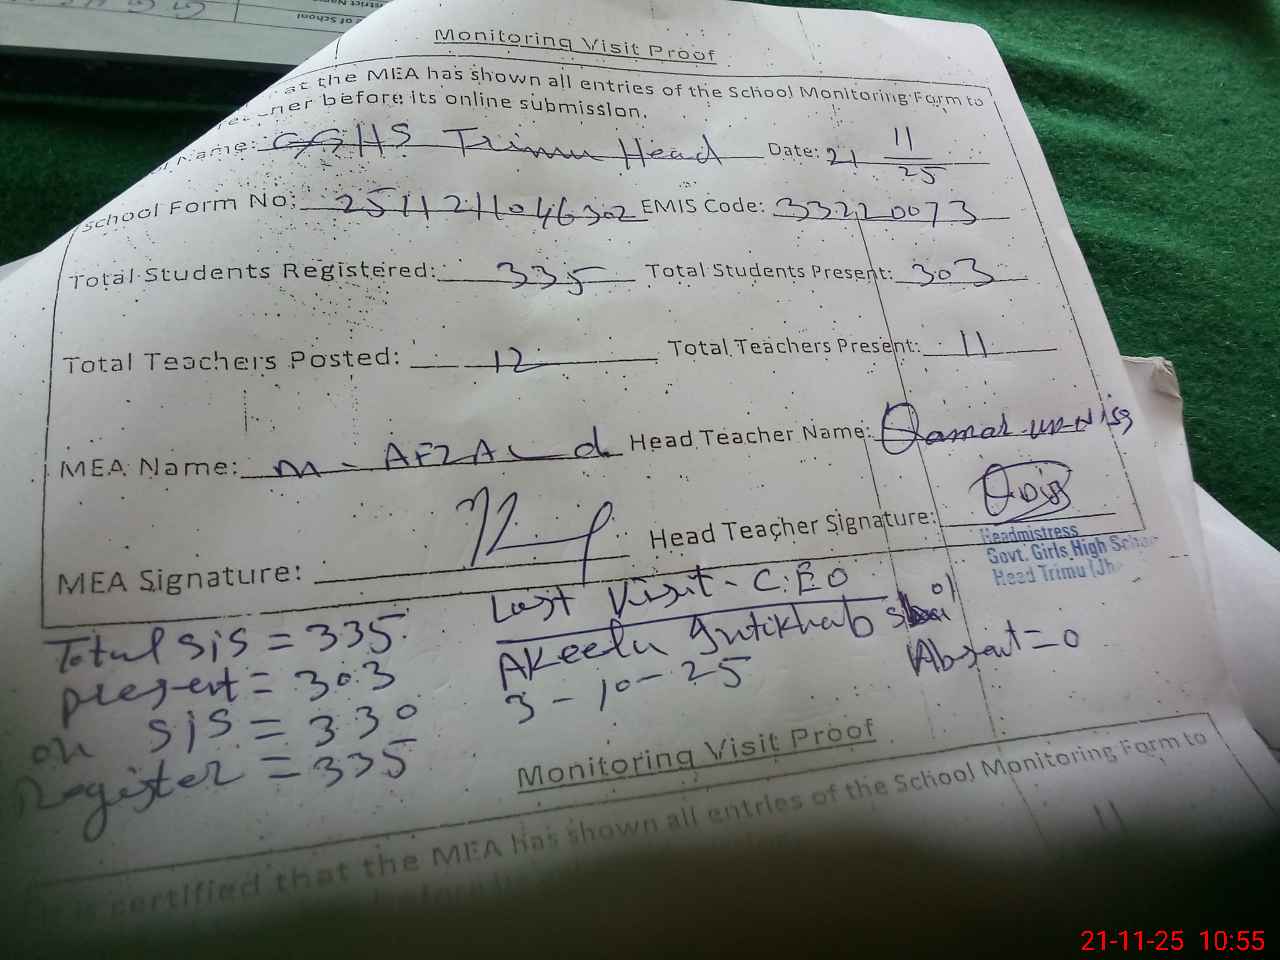 of School
Monitoring Visit Proof
at the MEA has shown all entries of the School Monitoring Form to
before its online submission.
Name: GGHS Trimu Head Date: 21 11/25
School Form No: 25112111046302 EMIS Code: 33220073
Total Students Registered: 335 Total Students Present: 303
Total Teachers Posted: 12 Total Teachers Present: 11
MEA Name: M - AFZAL Head Teacher Name: Qamar-un-Nisa
MEA Signature: Head Teacher Signature:
Headmistress
Govt. Girls High School
Head Trimu (Jh
Total SIS = 335
present = 303
on SIS = 330
Register = 335
Last Visit - C.E.O
AKeela Intikhab
3-10-25
Absent = 0
Monitoring Visit Proof
It is certified that the MEA has shown all entries of the School Monitoring Form to
21-11-25 10:55